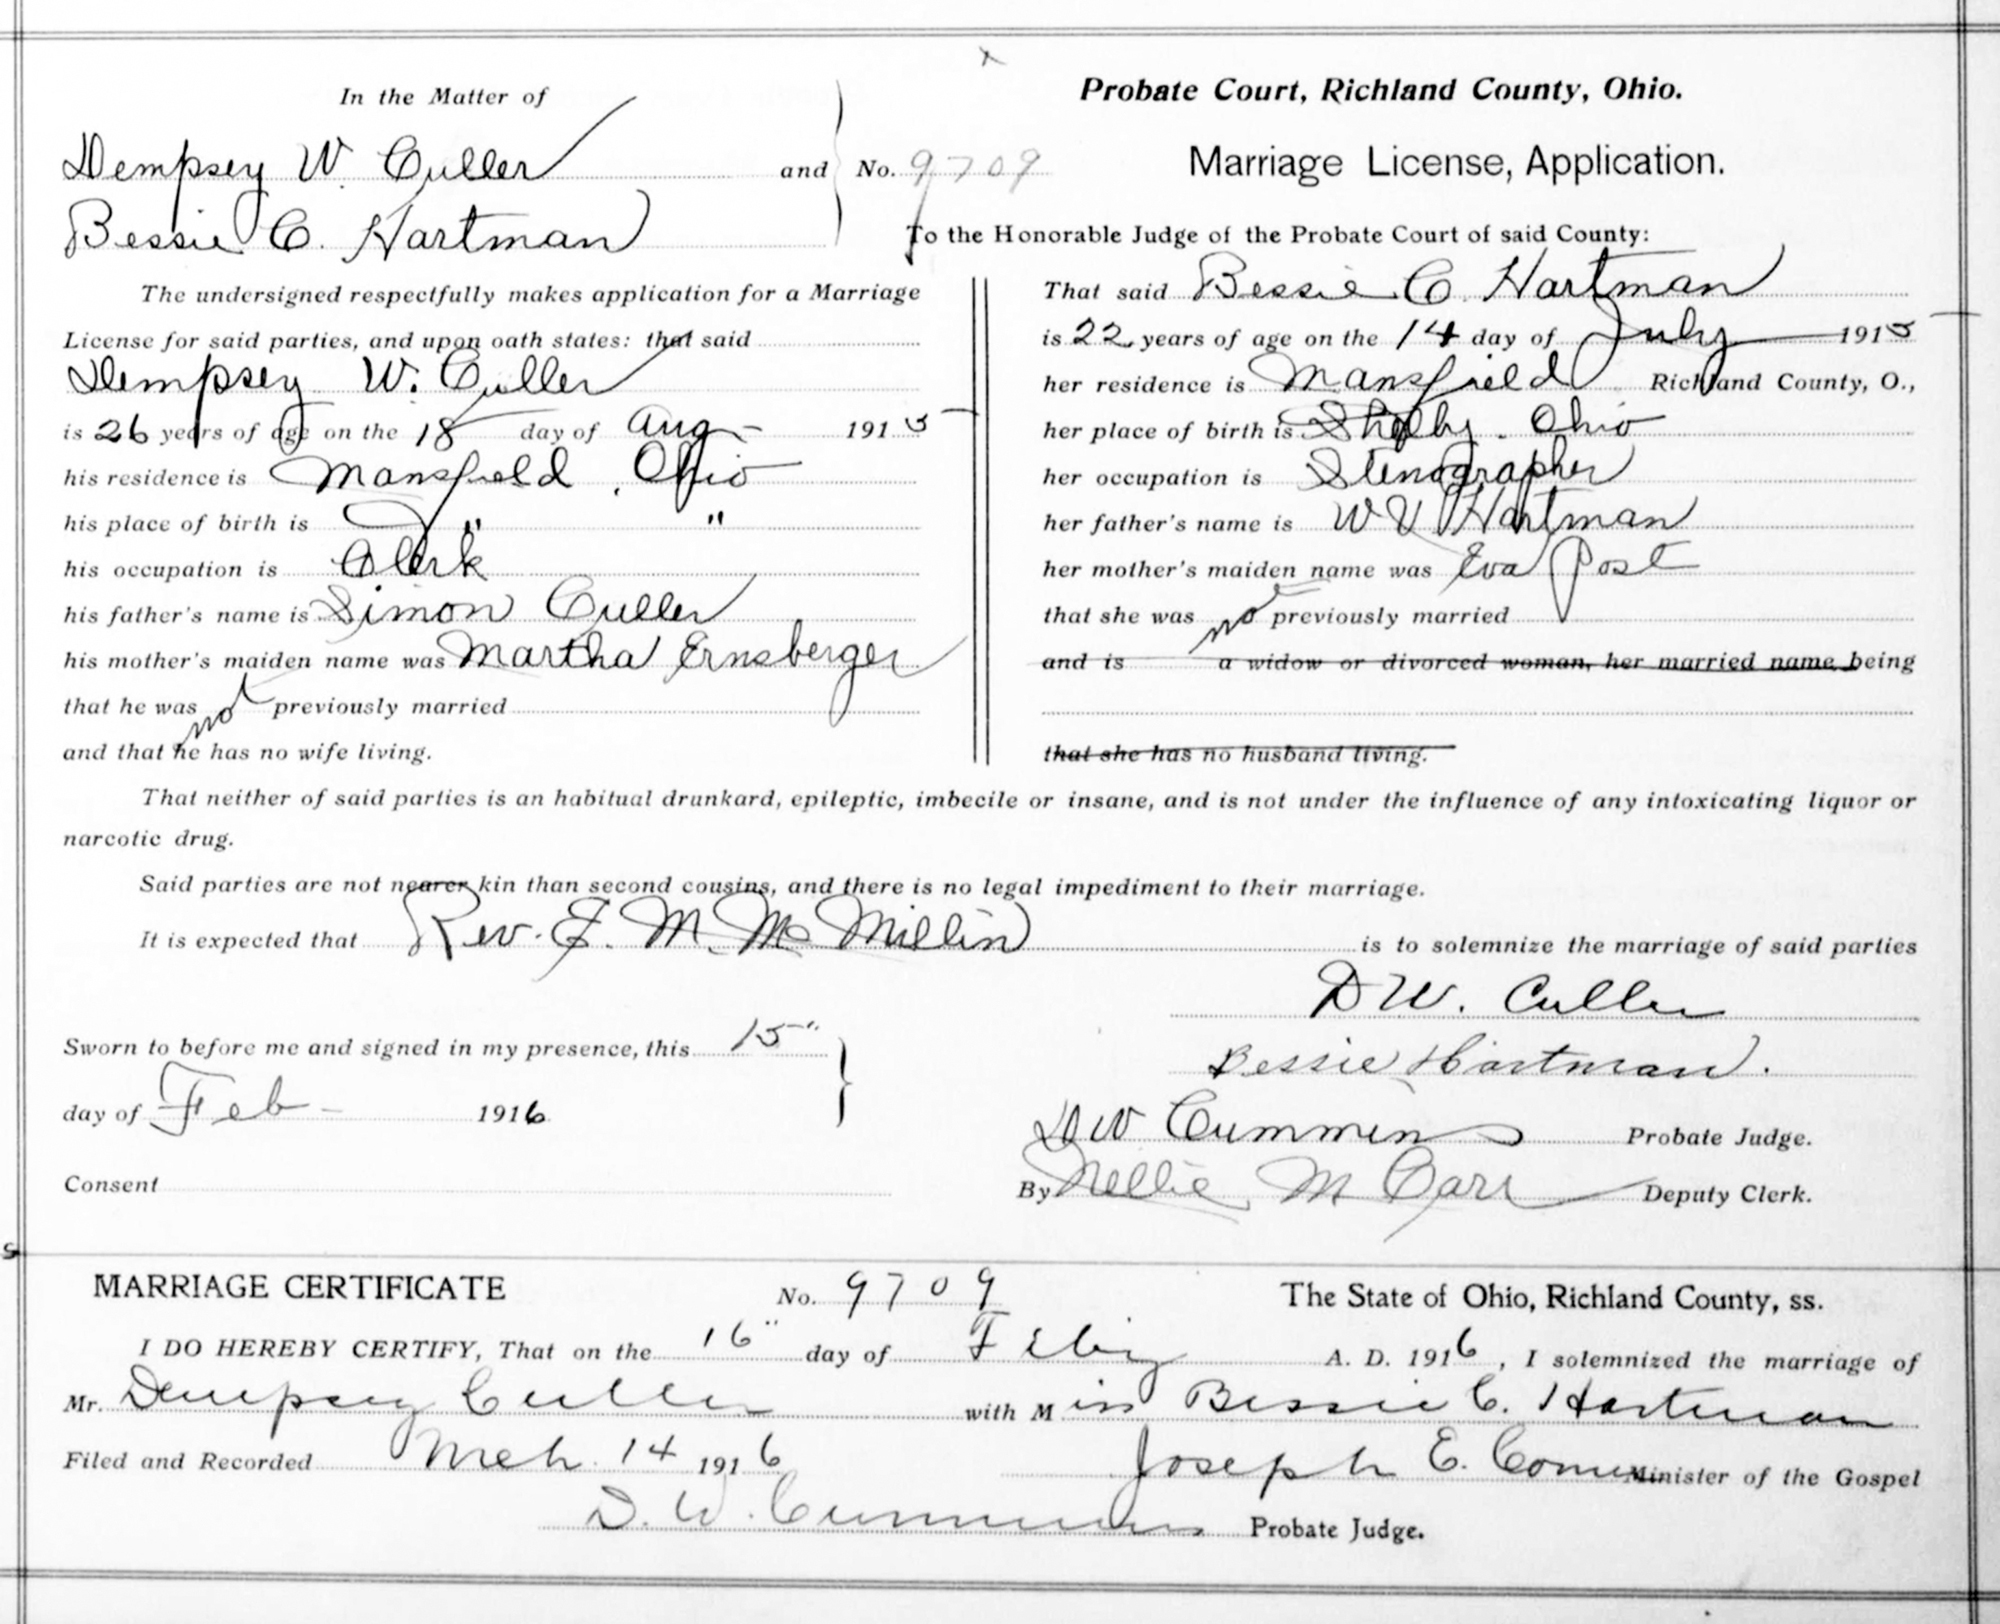 In the Matter of
Dempsey W. Culler and
Bessie C. Hartman
No. 9709
Probate Court, Richland County, Ohio.
Marriage License, Application.
To the Honorable Judge of the Probate Court of said County:
The undersigned respectfully makes application for a Marriage
License for said parties, and upon oath states: that said
Dempsey W. Culler
is 26 years of age on the 18 day of Aug 1915
his residence is Mansfield, Ohio
his place of birth is " "
his occupation is Clerk
his father's name is Simon Culler
his mother's maiden name was Martha Ernsberger
that he was not previously married
and that he has no wife living.
That said Bessie C. Hartman
is 22 years of age on the 14 day of July 1915
her residence is Mansfield Richland County, O.,
her place of birth is Shelby. Ohio
her occupation is Stenographer
her father's name is W V Hartman
her mother's maiden name was Eva Post
that she was not previously married
and is a widow or divorced woman, her married name being
that she has no husband living.
That neither of said parties is an habitual drunkard, epileptic, imbecile or insane, and is not under the influence of any intoxicating liquor or
narcotic drug.
Said parties are not nearer kin than second cousins, and there is no legal impediment to their marriage.
It is expected that Rev. F. M. McMillin is to solemnize the marriage of said parties
D W. Culler
Bessie Hartman.
Sworn to before me and signed in my presence, this 15"
day of Feb - 1916
D W Cummins Probate Judge.
Consent
By Nellie M Carr Deputy Clerk.
MARRIAGE CERTIFICATE No. 9709 The State of Ohio, Richland County, ss.
I DO HEREBY CERTIFY, That on the 16" day of Feby A. D. 1916, I solemnized the marriage of
Mr. Dempsey Culler with Miss Bessie C. Hartman
Filed and Recorded Mch. 14 1916
Joseph E. Minister of the Gospel
D. W. Cummins Probate Judge.